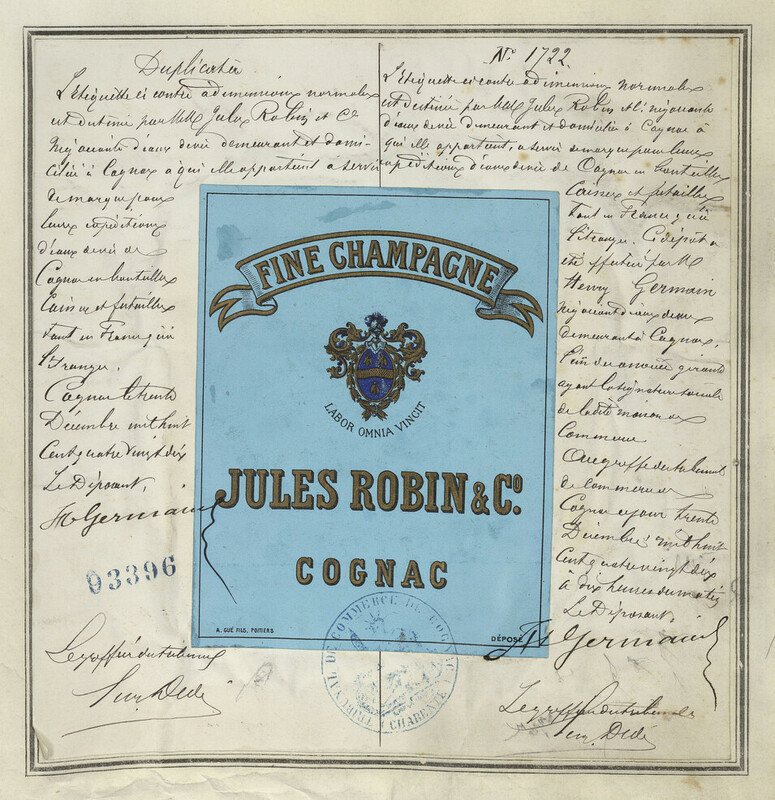 Duplicata
L'étiquette ci contre à dimensions normales
est destinée par MM. Jules Robin et Cie
négociants d'eaux devie demeurant et domi-
ciliés à Cognac à qui elle appartient à servir
de marque pour
leurs expéditions
d'eaux devie de
Cognac en bouteilles
Caisses et futailles
tant en France qu'à
l'Étranger.
Cognac le trente
Décembre mil huit
Cent quatre vingt dix
Le Déposant,
H Germain
93396
Le greffier du tribunal
Dédé
No. 1722
L'étiquette ci contre à dimensions normales
est destinée par MM. Jules Robin et Cie négociants
d'eaux devie demeurant et domiciliés à Cognac à
qui elle appartient, à servir de marque pour leurs
expéditions d'eaux devie de Cognac en bouteilles
Caisses et futailles
tant en France qu'à
l'étranger. Ce dépôt a
été effectué par M
Henry Germain
négociant d'eaux devie
demeurant à Cognac,
l'un des associés gérants
ayant la signature sociale
de la dite maison de
Commerce.
Au greffe du tribunal
de Commerce de
Cognac ce jour trente
Décembre mil huit
cent quatre vingt dix
à dix heures du matin
Le Déposant,
H Germain
Le greffier du tribunal
Dédé
FINE CHAMPAGNE
LABOR OMNIA VINCIT
JULES ROBIN & Co.
COGNAC
A. GUÉ FILS, POITIERS
DÉPOSÉ
TRIBUNAL DE COMMERCE DE COGNAC
(CHARENTE)